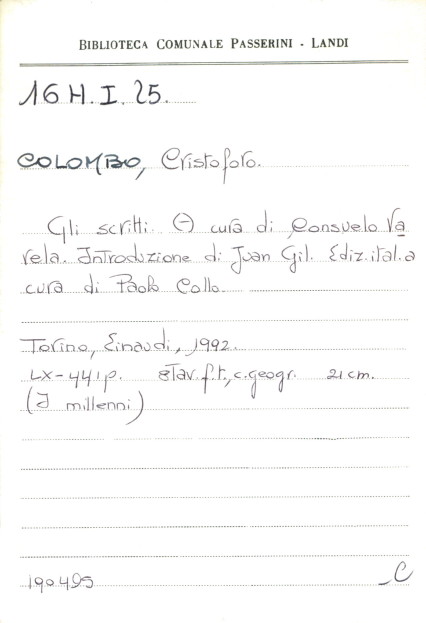 BIBLIOTECA COMUNALE PASSERINI - LANDI
16 H. I. 25.
COLOMBO, Cristoforo.
Gli scritti. (-) cura di Consuelo Va
rela. Introduzione di Juan Gil. Ediz. ital. a
cura di Paolo Collo.
Torino, Einaudi, 1992.
LX-441 p. 8 Tav. f.t., c. geogr. 21 cm.
(I millenni)
190495
C